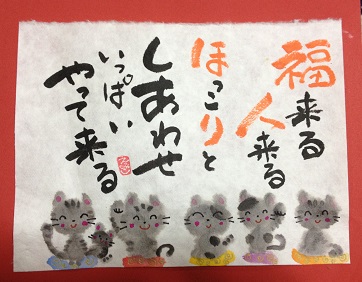 福来る
人来る
ほっこりと
しあわせ
いっぱい
やって来る